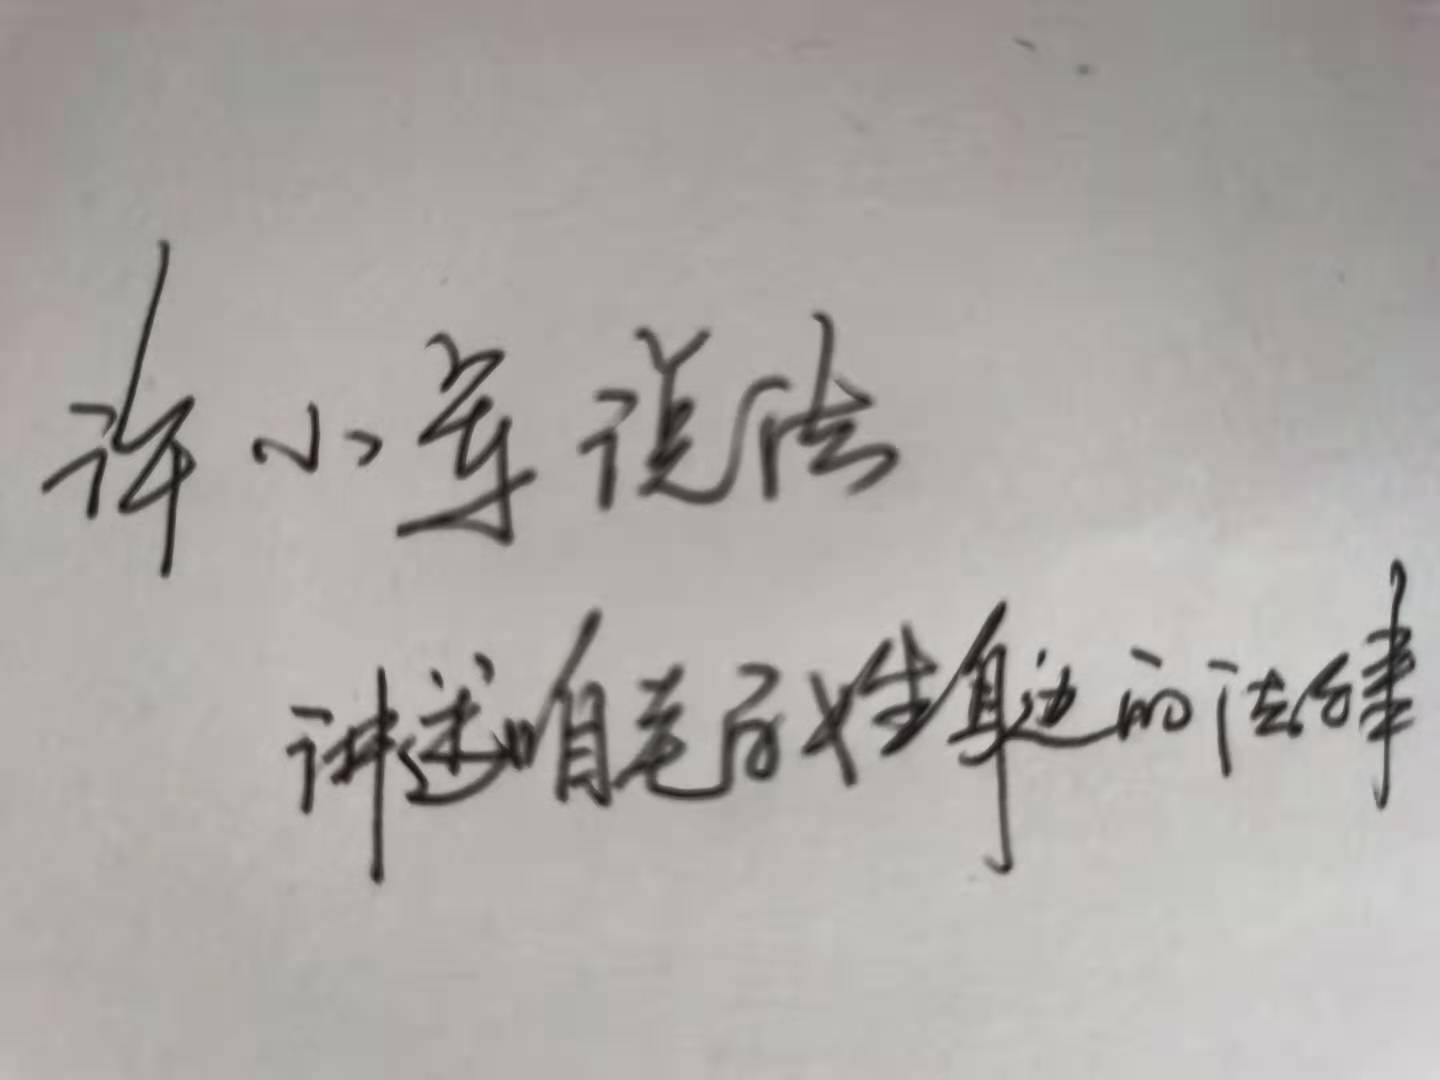 许小军说法
讲述咱老百姓身边的法律